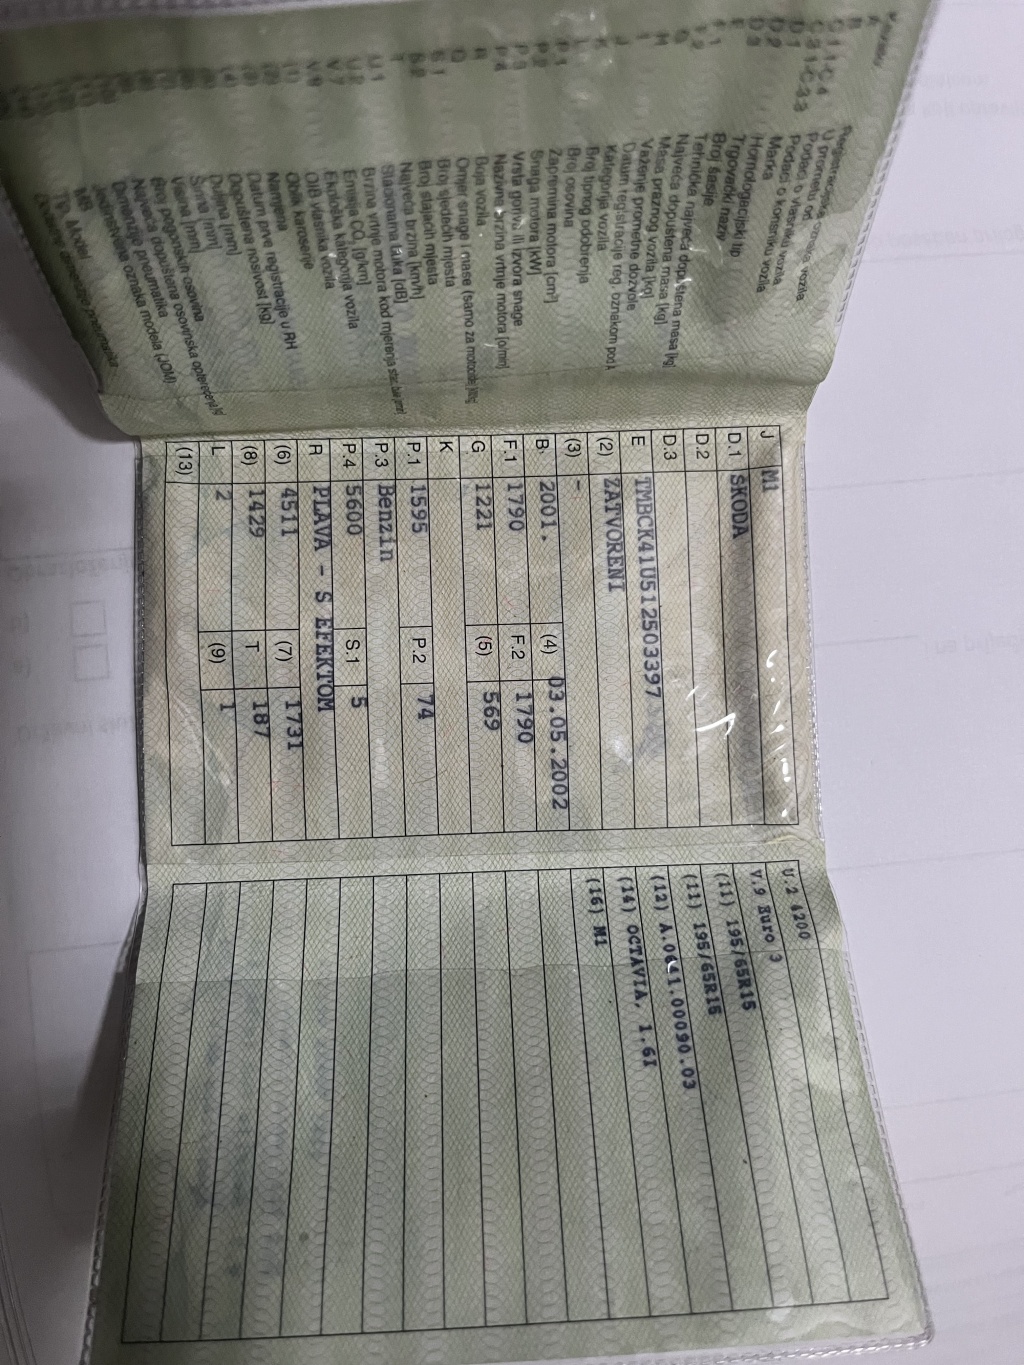 Registracijska
C.3.1-C.3.3 Podaci o vlasniku vozila
Podaci o korisniku vozila
Marka
Homologacijski tip
Trgovački naziv
Broj šasije
Tehnička najveća dopuštena masa [kg]
Najveća dopuštena masa [kg]
Masa praznog vozila [kg]
Važenje prometne dozvole
Datum registracije reg. oznakom pod
Kategorija vozila
Broj tipnog odobrenja
Broj osovina
Zapremina motora [cm³]
Snaga motora [kW]
Vrsta goriva ili izvora snage
Nazivna brzina vrtnje motora [o/min]
Boja vozila
Omjer snage i mase (samo za motocikle)
Broj sjedećih mjesta
Broj stajaćih mjesta
Najveća brzina [km/h]
Stacionarna buka [dB]
Brzina vrtnje motora kod mjerenja
Emisija CO₂ [g/km]
Ekološka kategorija vozila
OIB vlasnika vozila
Oblik karoserije
Namjena
Datum prve registracije u RH
Dopuštena nosivost [kg]
Duljina [mm]
Širina [mm]
Visina [mm]
Broj pogonskih osovina
Najveća dopuštena osovinska opterećenja
Dimenzije pneumatika
Jedinstvena oznaka modela (JOM)
Tip, Model
J M1
D.1 ŠKODA
D.2
D.3
E TMBCK41U512503397
(2) ZATVORENI
(3) -
B 2001. (4) 03.05.2002
F.1 1790 F.2 1790
G 1221 (5) 569
K
P.1 1595 P.2 74
P.3 Benzin
P.4 5600 S.1 5
R PLAVA - S EFEKTOM
(6) 4511 (7) 1731
(8) 1429 T 187
L 2 (9) 1
(13)
U.2 4200
V.9 Euro 3
(11) 195/65R15
(11) 195/65R15
(12) A.0641.00090.03
(14) OCTAVIA, 1.6I
(16) M1